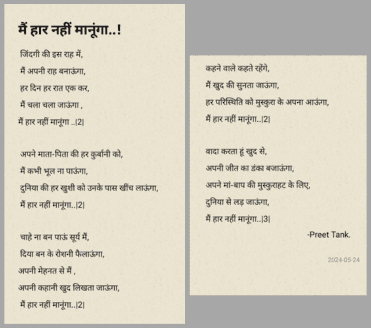 मैं हार नहीं मानूंगा..!
जिंदगी की इस राह में,
मैं अपनी राह बनाऊंगा,
हर दिन हर रात एक कर,
मैं चला चला जाऊंगा ,
मैं हार नहीं मानूंगा ..|2|
अपने माता-पिता की हर कुर्बानी को,
मैं कभी भूल ना पाऊंगा,
दुनिया की हर खुशी को उनके पास खींच लाऊंगा,
मैं हार नहीं मानूंगा..|2|
चाहे ना बन पाऊं सूर्य मैं,
दिया बन के रोशनी फैलाऊंगा,
अपनी मेहनत से मैं ,
अपनी कहानी खुद लिखता जाऊंगा,
मैं हार नहीं मानूंगा..|2|
कहने वाले कहते रहेंगे,
मैं खुद की सुनता जाऊंगा,
हर परिस्थिति को मुस्कुरा के अपना आऊंगा,
मैं हार नहीं मानूंगा..|2|
वादा करता हूं खुद से,
अपनी जीत का डंका बजाऊंगा,
अपने मां-बाप की मुस्कुराहट के लिए,
दुनिया से लड़ जाऊंगा,
मैं हार नहीं मानूंगा..|3|
-Preet Tank.
2024-05-24